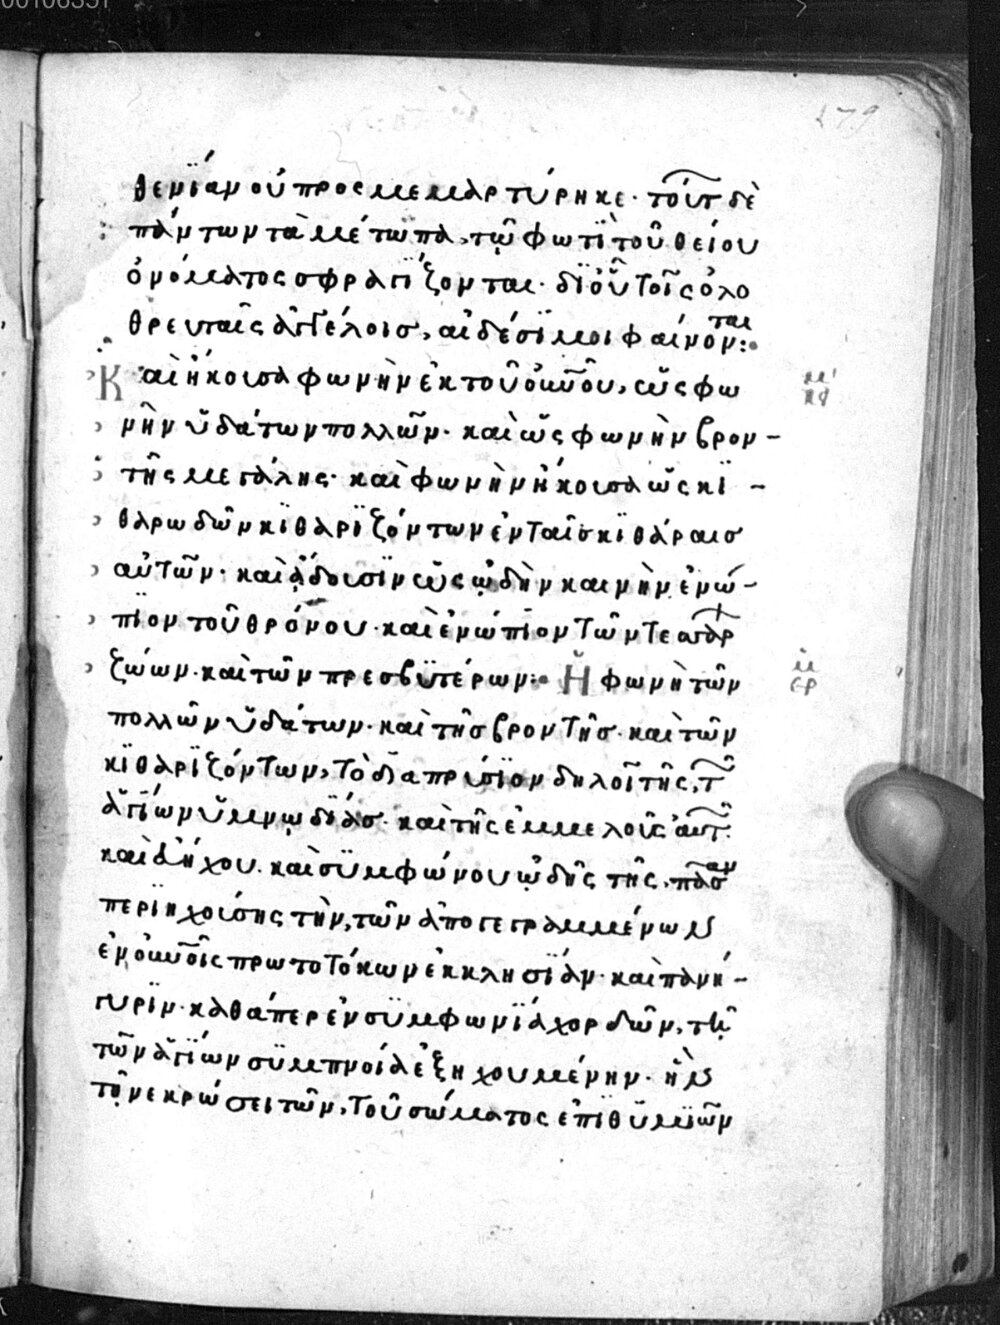 279
θενΐαν οὐ προσμεμαρτύρηκε· τούτ δὲ
πάντων τὰ μέτωπα, τῷ φωτὶ τοῦ θείου
ὀνόματος σφραγΐζονται· δϊ οὗ τοῖς ὀλο
θρευταῖς ἀγγέλοις, αἰδέσϊμοι φαίνονται:
Καὶ ἤκουσα φωνὴν ἐκ τοῦ οὐνοῦ, ὡς φω
νὴν ὑδάτων πολλῶν· καὶ ὡς φωνὴν βρον-
τῆς μεγάλης· καὶ φωνὴν ἤκουσα ὡς κϊ-
θαρωδῶν κϊθαρϊζόντων ἐν ταῖς κϊθάραις
αὐτῶν· καὶ ᾄδουσϊν ὡς ᾠδὴν καινὴν ἐνώ-
πϊον τοῦ θρόνου· καὶ ἐνώπϊον τῶν τεσσάρ
ζώων· καὶ τῶν πρεσβϋτέρων: Ἡ φωνὴ τῶν
πολλῶν ὑδάτων· καὶ τῆς βροντῆς· καὶ τῶν
κϊθαρϊζόντων, τὸ δϊαπρύσϊον δηλοῖ τῆς, τ
ἁγΐων ὑμνῳδΐας· καὶ τῆς ἐμμελοῦς αὐτ
καὶ εὐήχου· καὶ συμφώνου ᾠδῆς τῆς, πᾶσαν
περιηχούσης τὴν, τῶν ἀπογεγραμμένων
ἐν οὐνοῖς πρωτοτόκων ἐκκλησΐαν· καὶ πανή-
γυρϊν· καθάπερ ἐν συμφωνΐα χορδῶν, τῇ
τῶν ἁγΐων συμπνοία ἐξηχουμένην· ἣν
τῇ νεκρώσει τῶν, τοῦ σώματος ἐπϊθυμϊῶν